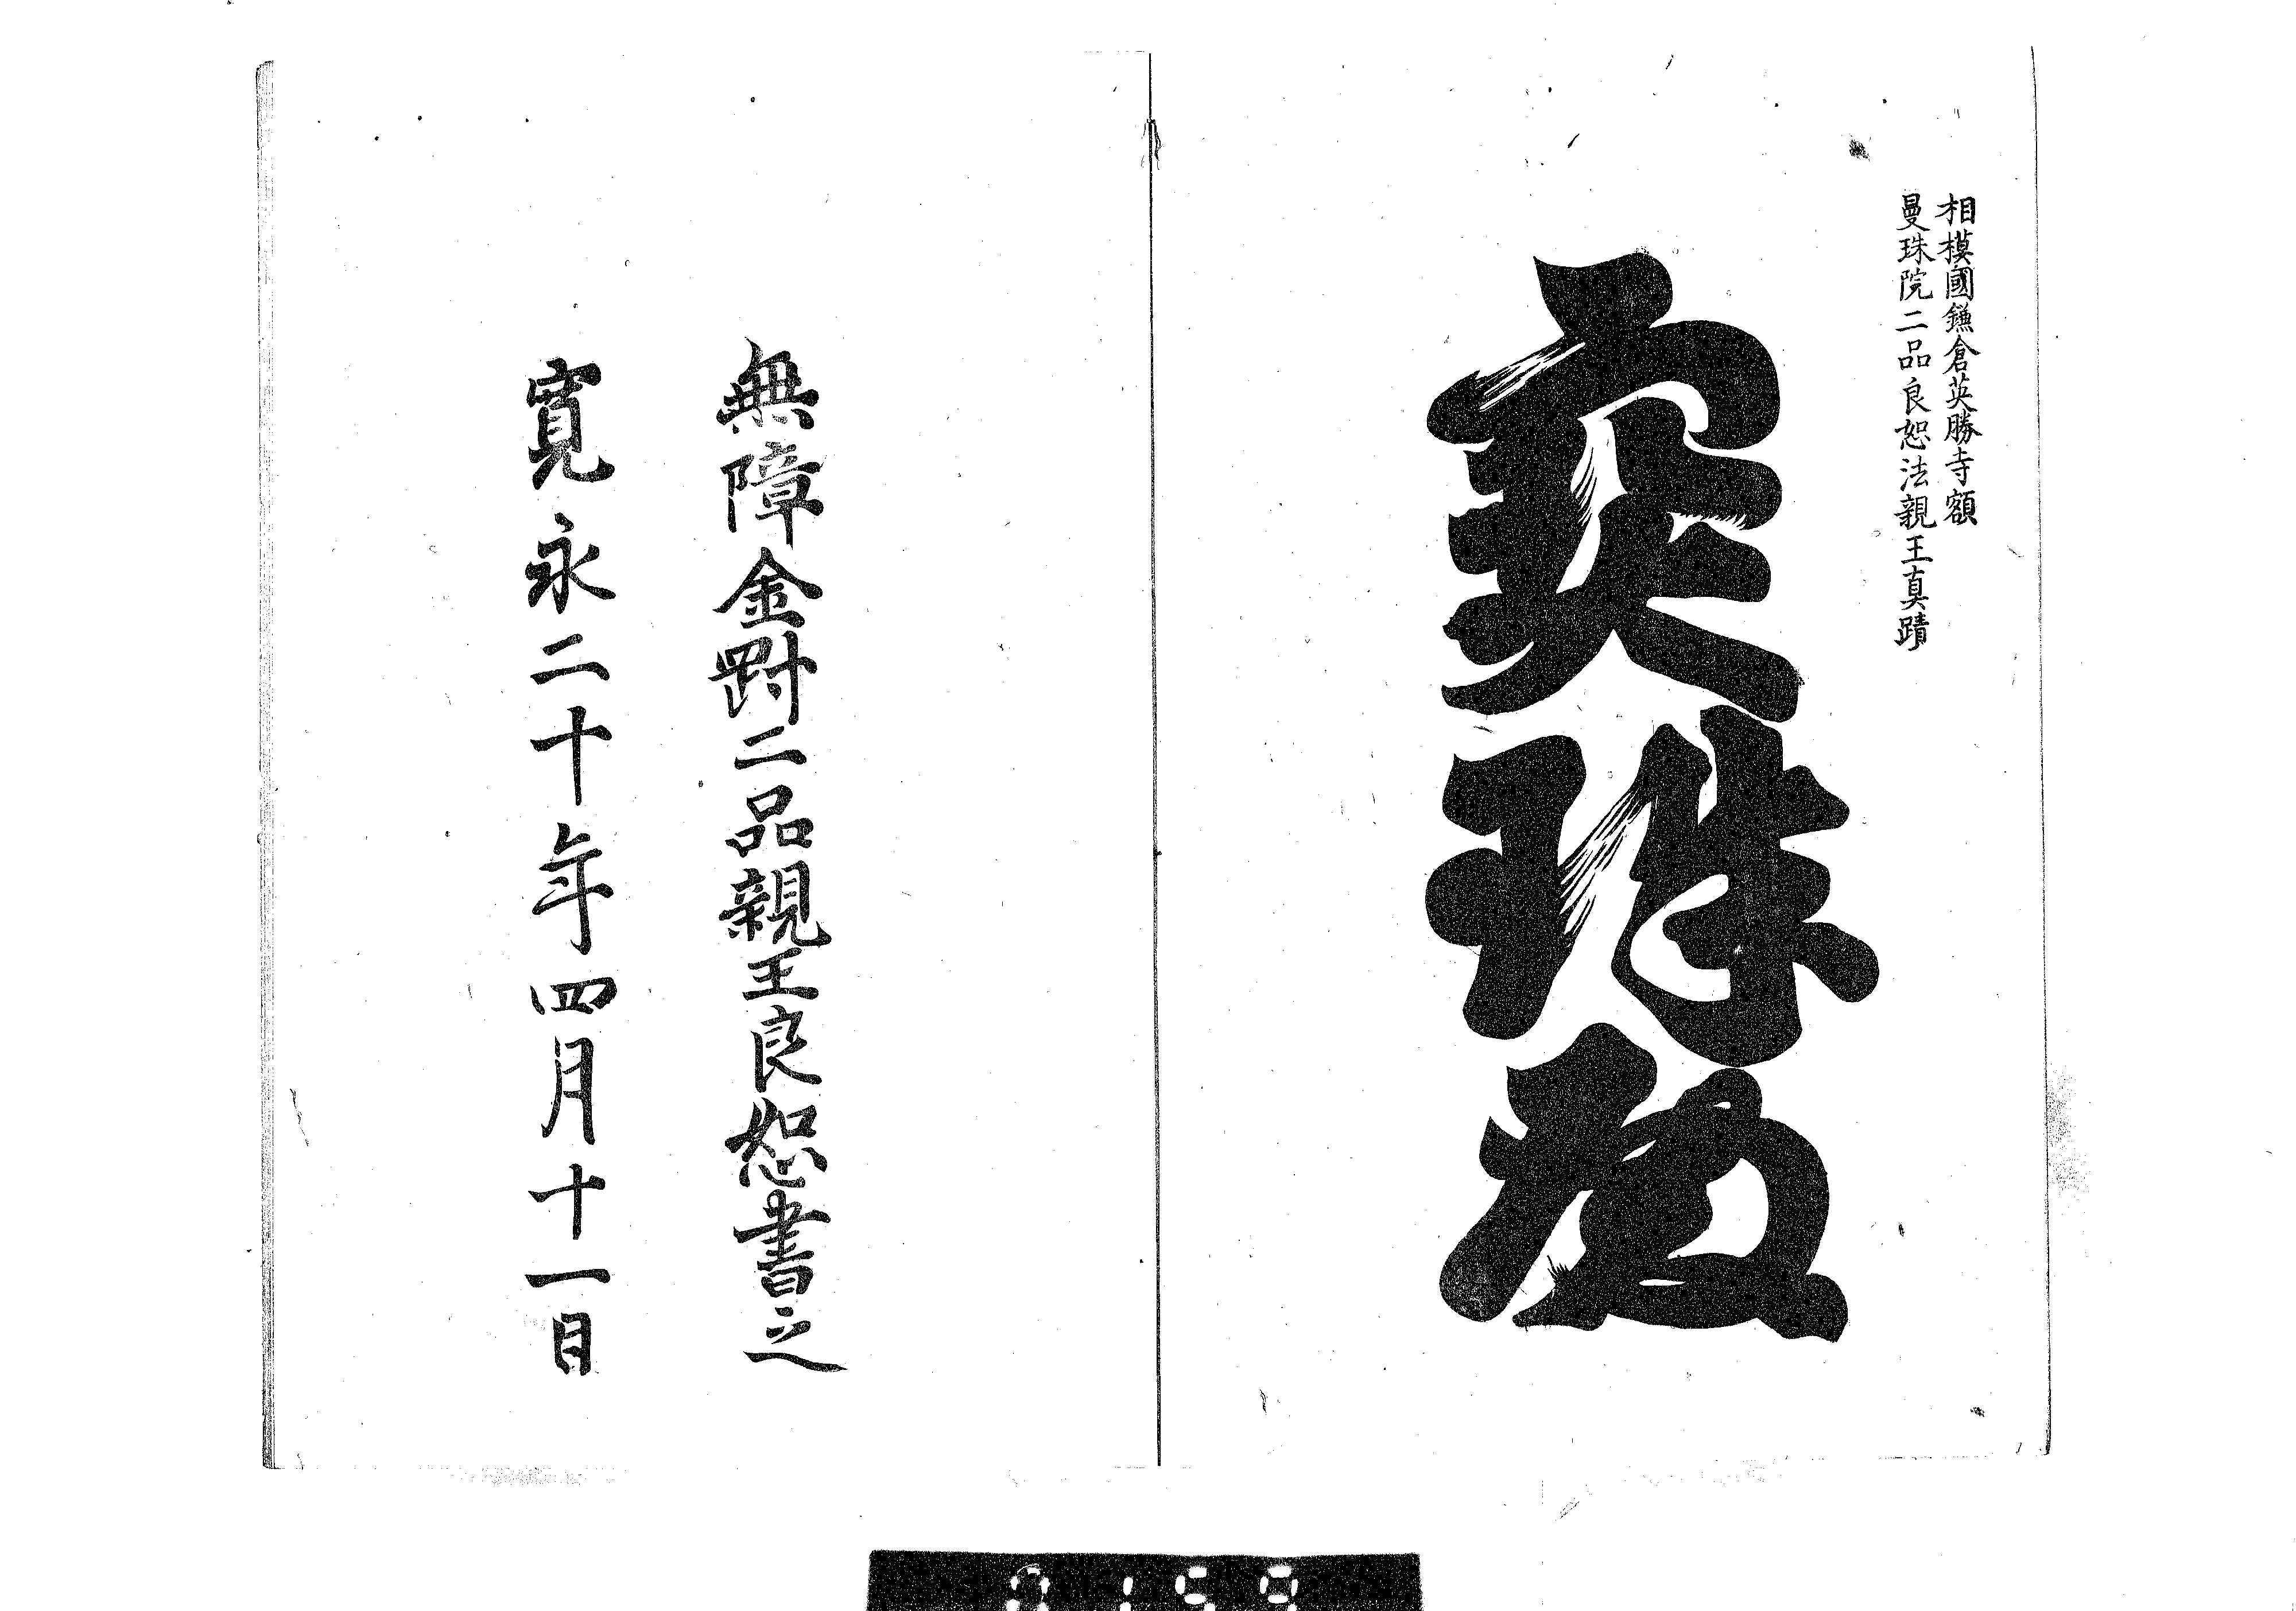 相模國鎌倉英勝寺額
曼珠院二品良恕法親王真蹟
寳珠殿
無障金剛二品親王良恕書之
寛永二十年四月十一日